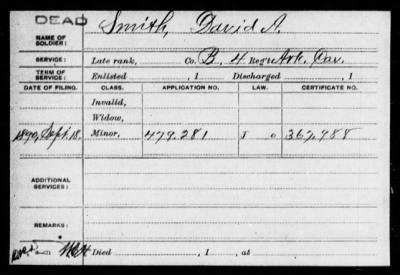 DEAD
NAME OF SOLDIER: Smith, David A.
SERVICE: Late rank, Co. B, 4 Reg't Ark. Cav.
TERM OF SERVICE: Enlisted , 1 Discharged , 1
DATE OF FILING. CLASS. APPLICATION NO. LAW. CERTIFICATE NO.
Invalid,
Widow,
1890, Sept. 18. Minor, 479.281 362.988
ADDITIONAL SERVICES:
REMARKS:
Died , 1 , at